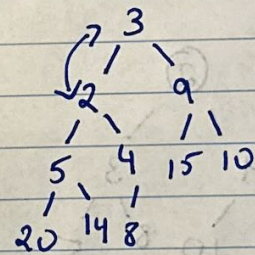 3
2 9
5 4 15 10
20 14 8